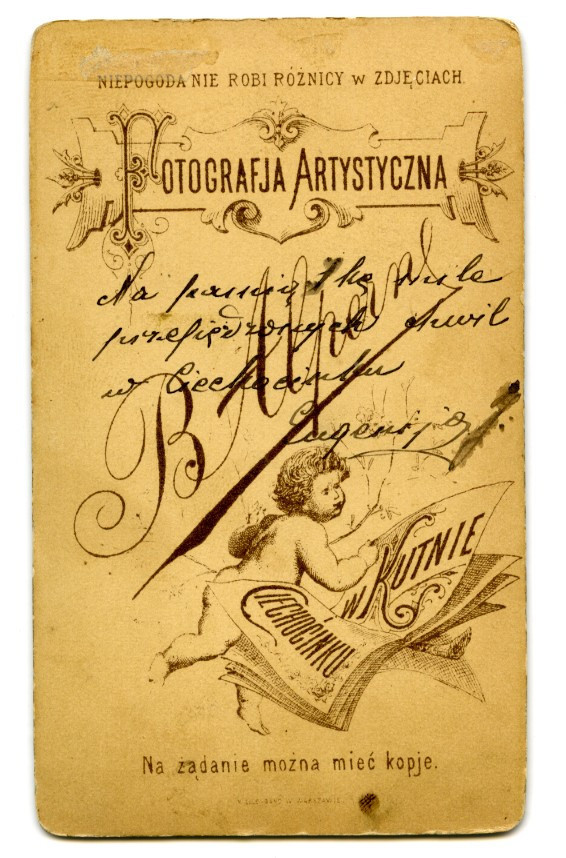 NIEPOGODA NIE ROBI RÓŻNICY W ZDJĘCIACH.
FOTOGRAFJA ARTYSTYCZNA
Na pamiątkę mile
przepędzonych chwil
w Ciechocinku
Eugenij
B.
W KUTNIE
CIECHOCINKU
Na żądanie można mieć kopje.